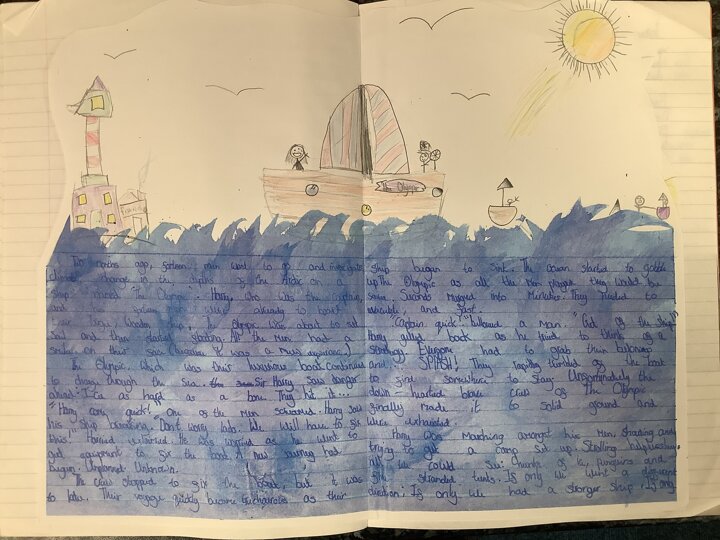 Olympic
Two months ago, fourteen men went to go and investigate
climate change in the depths of the Arctic on a
ship named The Olympic. Harry, who was the captain,
and his men were already to board
their Wooden ship, The Olympic was about to set
Sail and then started sailing. All the men had a
smile on their face
The Olympic which was their luxurious boat continued
to charge through the sea. Sir Harry saw danger
ahead. Ice as hard as a bone. They hit it...
"Harry come quick!" One of the Men screamed. Harry saw
his ship breaking. "Don't worry lads. We will have to fix
this" Harry explained. He was worried as he went to
get equipment to fix the boat. A new journey had
begun. Unknown.
The crew stopped to fix the boat, but it was
to late. Their voyage quickly became treacherous as their
ship began to sink. The ocean started to gobble
up The Olympic as all the Men prayed they would be
Seconds merged into Minutes. They needed to
evacuate, and fast.
"Captain quick" bellowed a man. "Get off the ship"
Harry yelled back as he tried to think of a
strategy. Everyone had to grab their belongings
and... SPLASH! They tumbled off the boat
to find somewhere to stay. Unfortunately the
down-hearted crew of The Olympic
finally made it to solid ground and
were exhausted.
Harry was Marching amongst his Men shouting and
trying to get a camp set up. Strolling
all we could See: chunks of ice, penguins and
stranded If only we went a different
direction. If only we had a stronger ship. If only